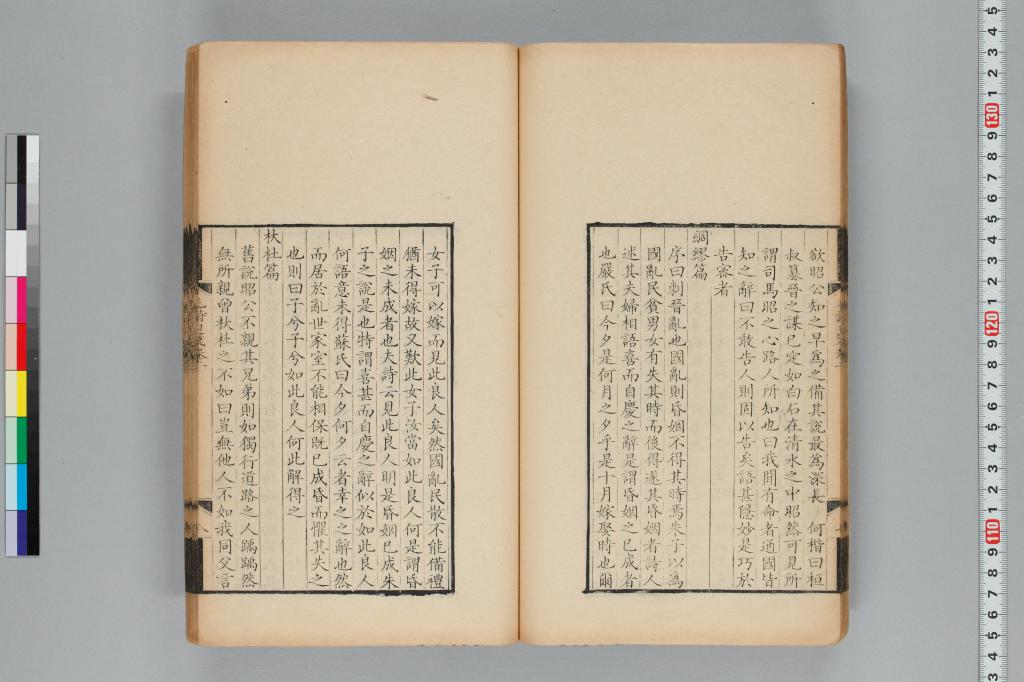 欲昭公知之早為之備其說最為深長　何楷曰桓
叔篡晉之謀已定如白石在清水之中昭然可見所
謂司馬昭之心路人所知也曰我聞有命者通國皆
知之辭曰不敢告人則固以告矣語甚隱妙是巧於
告密者
綢繆篇
序曰刺晉亂也國亂則昏姻不得其時焉朱子以為
國亂民貧男女有失其時而後得遂其昏姻者詩人
述其夫婦相語喜而自慶之辭是謂昏姻之已成者
也嚴氏曰今夕是何月之夕乎是十月嫁娶時也爾
女子可以嫁而見此良人矣然國亂民散不能備禮
猶未得嫁故又歎此女子汝當如此良人何是謂昏
姻之未成者也夫詩云見此良人明是昏姻已成朱
子之說是也特謂喜甚而自慶之辭似於如此良人
何語意未得蘇氏曰今夕何夕云者幸之之辭也然
而居於亂世家室不能相保既已成昏而懼其失之
也則曰子兮子兮如此良人何此解得之
杕杜篇
舊說昭公不親其兄弟則如獨行道路之人踽踽然
無所親曾杕杜之不如曰豈無他人不如我同父言
八
5
4
3
2
1
130
9
8
7
6
5
4
3
2
1
120
9
8
7
6
5
4
3
2
1
110
9
8
7
6
5
4
3